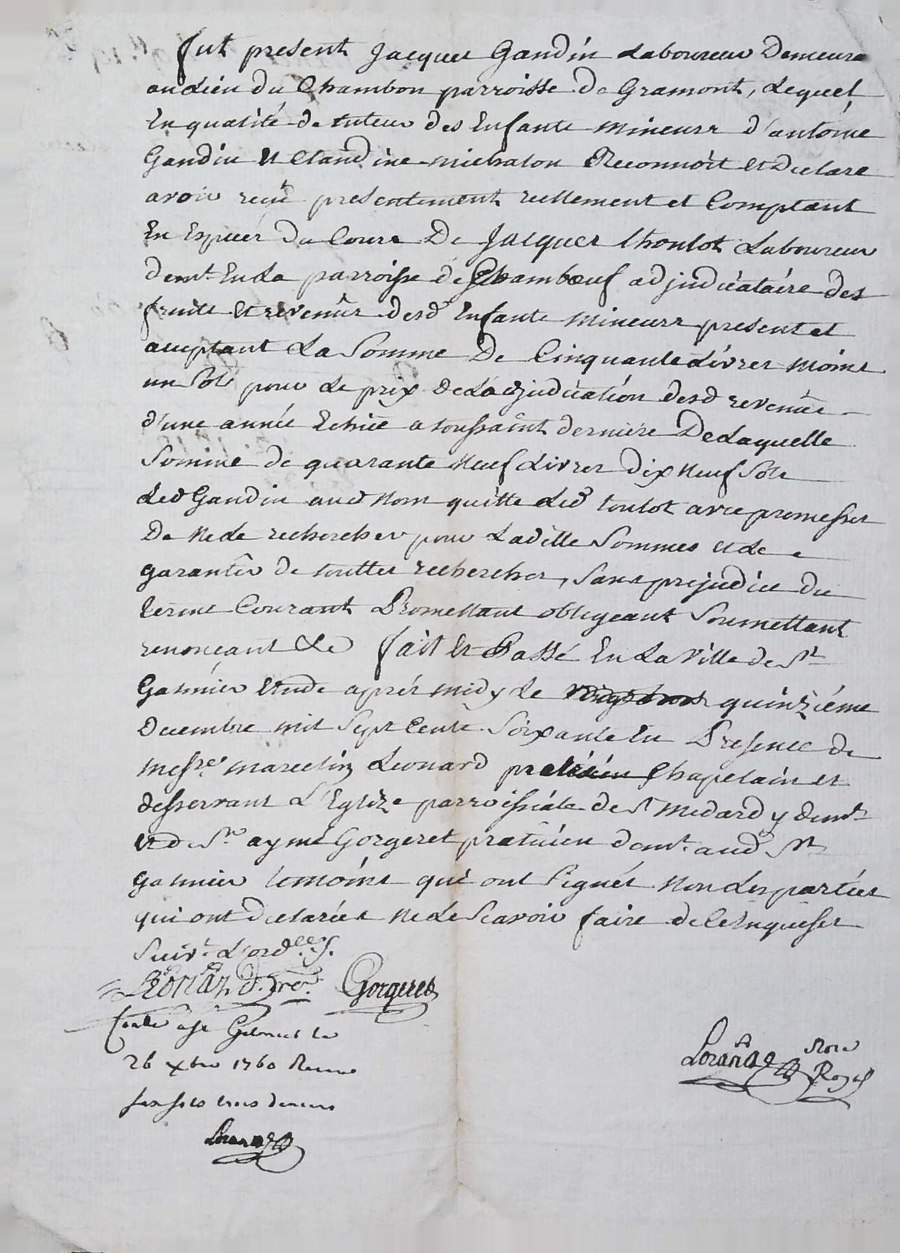 fut present Jacques Gandin Laboureur Demeure
au Lieu du Chambon parroisse de Gramont, Lequel
En qualité de tuteur des Enfants mineurs d'antoine
Gandin et Claudine michalon Reconnoit et declare
avoir reçu presentement reellement et Comptant
En Especes du Cours De Jacques thoulot Laboureur
demt. En La parroisse de Chambœuf adjudicataire des
fruits et revenus desd Enfants mineurs present et
acceptant La Somme De Cinquante Livres moins
un Sols pour Le prix De Ladjudication desd revenus
d'une année Echüe a toussaint derniere De Laquelle
Somme de quarante neuf Livres dix neuf Sols
Led Gandin aud nom quitte Led toulot avec promesses
De ne le rechercher pour Ladille Sommes et de
garantir de touttes recherches, Sans prejudice du
terme Courant Promettant obligeant Soumettant
renonçant &c fait et Passé En La Ville de St
Galmier Etude aprés midy Le quinziéme
Decembre mil Sept Cents Soixante En Presence de
messre marcelin Leonard Chapelain et
desservant L'Eglize parroissiale de St medard y demt
et de Sr aymé Gorgeret praticien demt. aud St
Galmier temoins qui ont Signés Non Les parties
qui ont declarées ne Le Scavoir faire de ce Enquises
Suivt. L'ordce
Gorgeret
Galmier le
26 xbre 1760 Reçu
six sols trois deniers
Notre
Royal